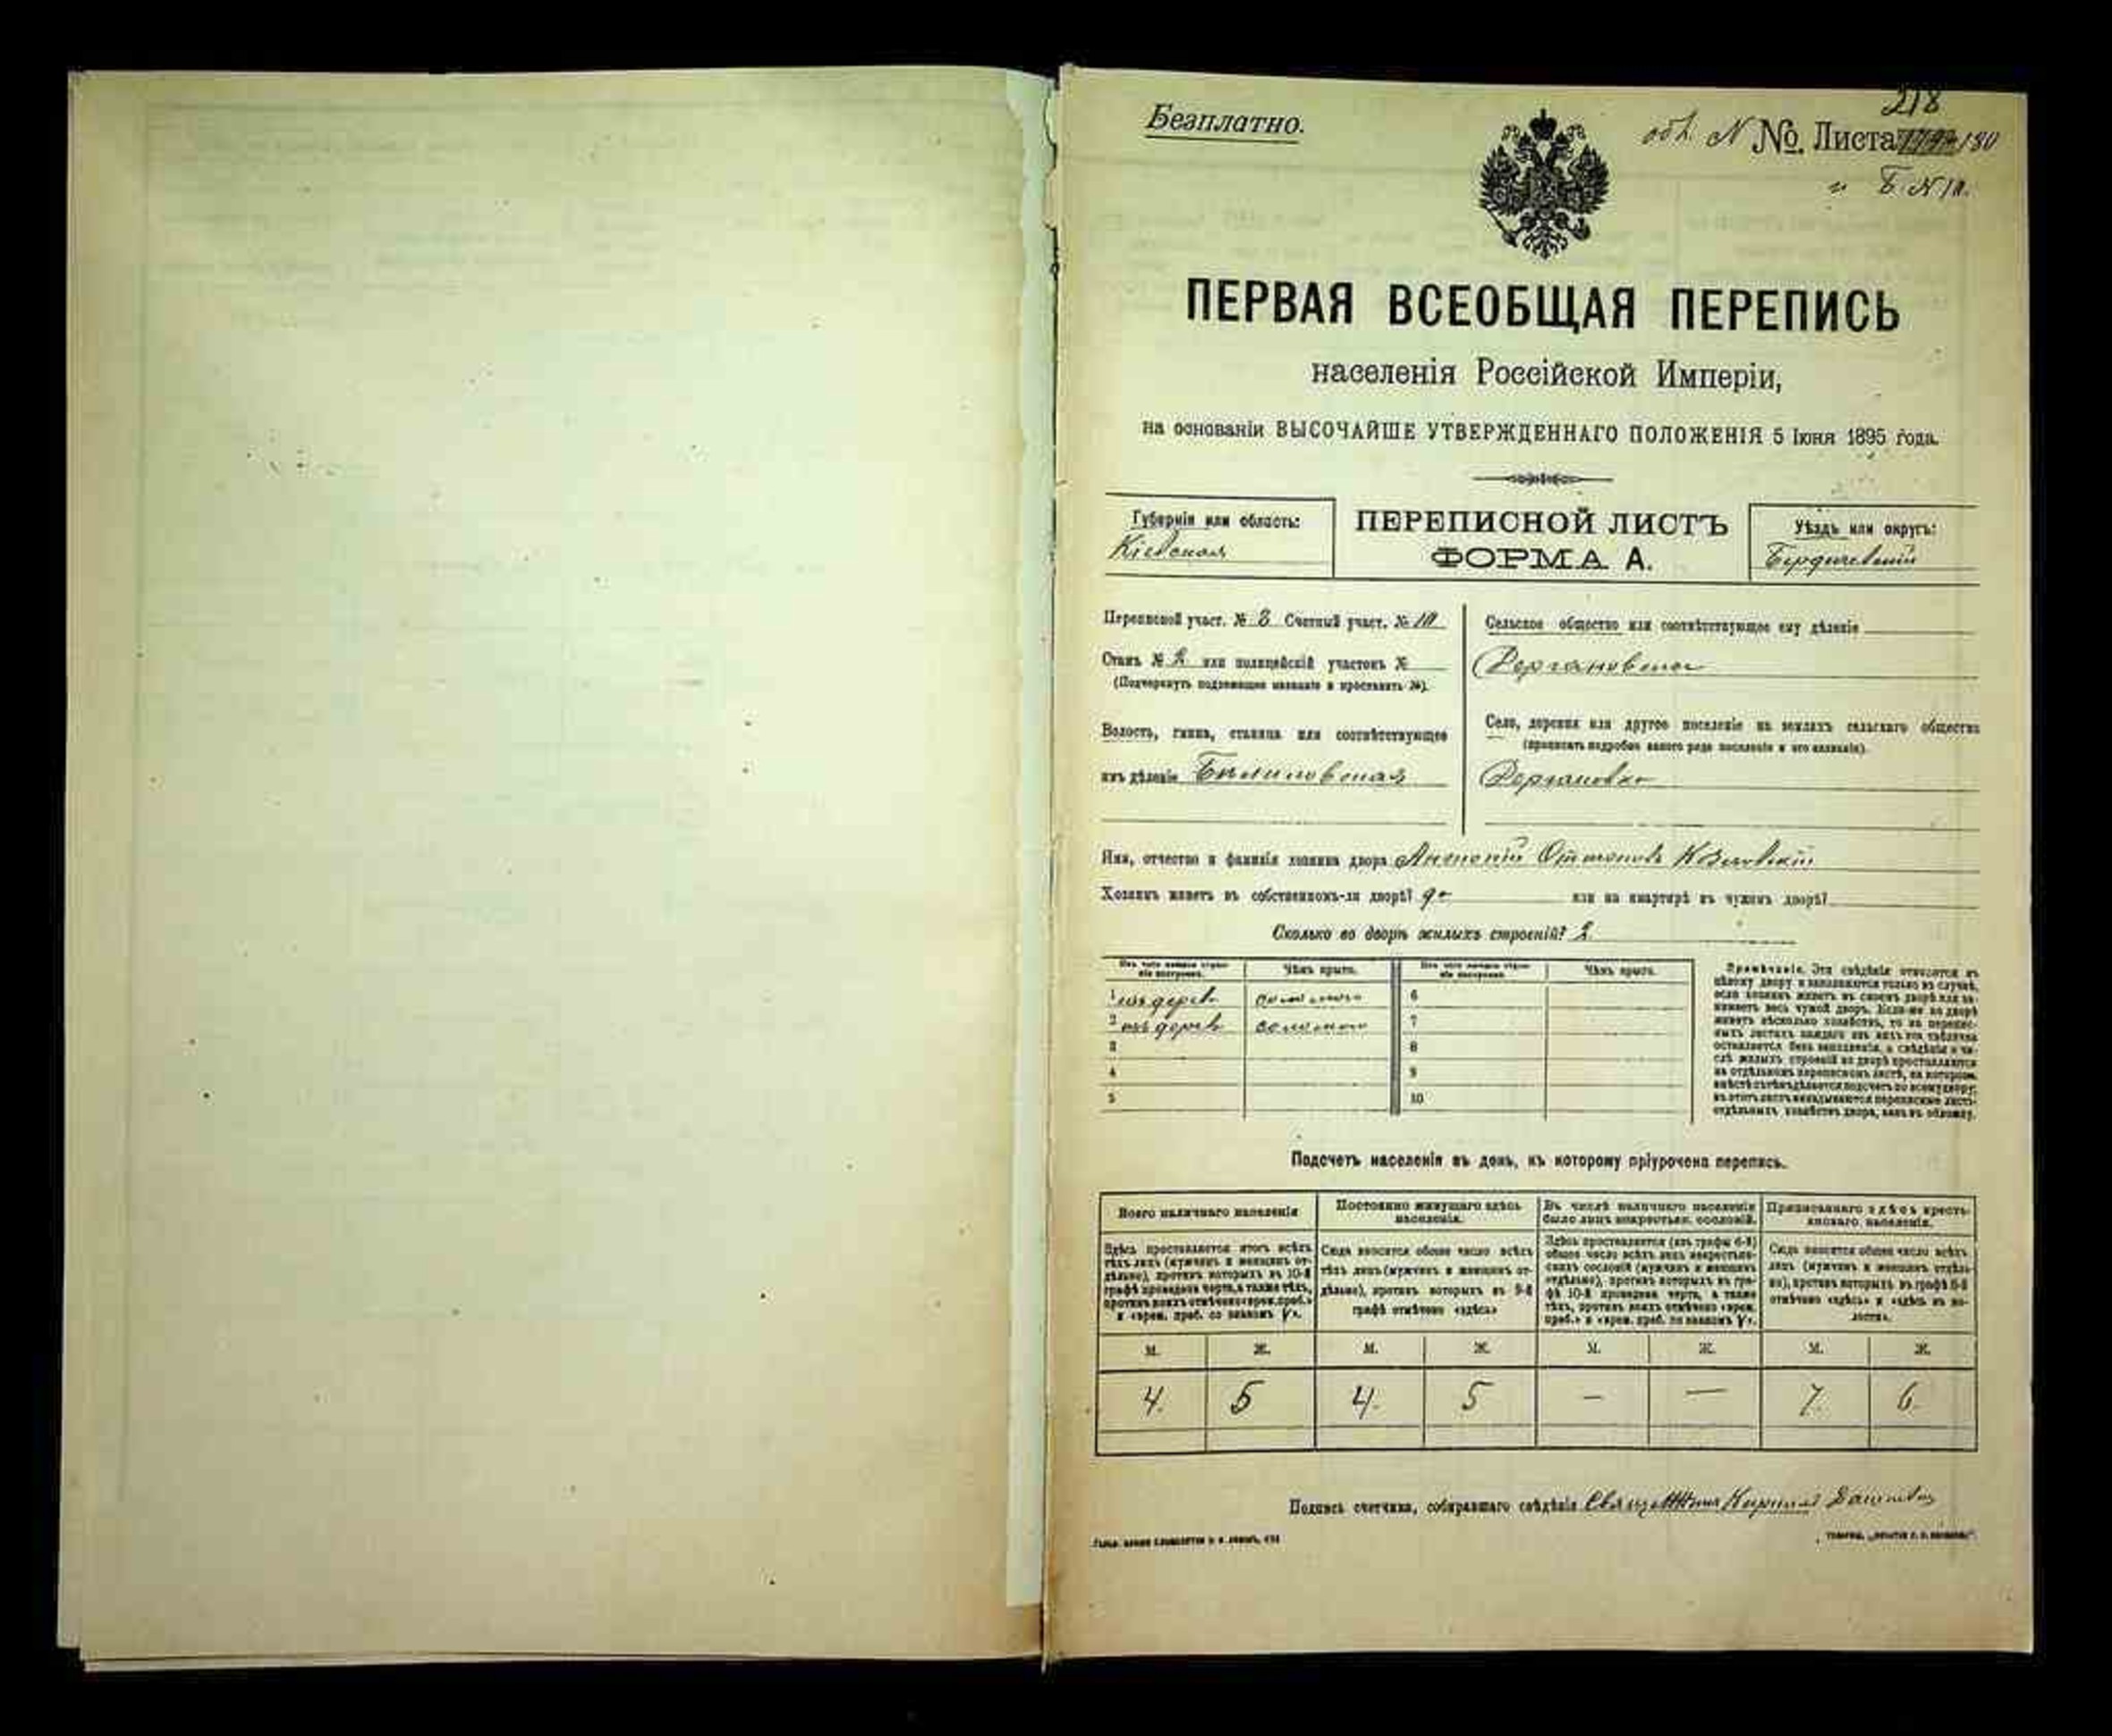 218
Безплатно.
№. Листа 180
Б. N 10.
ПЕРВАЯ ВСЕОБЩАЯ ПЕРЕПИСЬ
населенія Россійской Имперіи,
на основаніи ВЫСОЧАЙШЕ УТВЕРЖДЕННАГО ПОЛОЖЕНІЯ 5 Іюня 1895 года.
Губернія или область:
Кіевская
ПЕРЕПИСНОЙ ЛИСТЪ
ФОРМА А.
Уѣздъ или округъ:
Бердичевскій
Переписной участ. № 3 Счетный участ. № 10
Станъ № 2 или полицейскій участокъ №
(Подчеркнуть подлежащее названіе и проставить №).
Волость, гмина, станица или соотвѣтствующее
имъ дѣленіе Бѣлиловская
Сельское общество или соотвѣтствующее ему дѣленіе
Дергановское
Село, деревня или другое поселеніе на земляхъ сельскаго общества
(прописать подробно какого рода поселеніе и его названіе).
Дергановка
Имя, отчество и фамилія хозяина двора Антоній
Хозяинъ живетъ въ собственномъ-ли дворѣ? да или на квартирѣ въ чужомъ дворѣ?
Сколько во дворѣ жилыхъ строеній? 2.
Изъ чего жилыя строенія построены. Чѣмъ крыто. Изъ чего жилыя строенія построены. Чѣмъ крыто.
1 изъ дерев. соломою 6
2 изъ дерев. соломою 7
3 8
4 9
5 10
Примѣчаніе. Эти свѣдѣнія относятся къ
цѣлому двору и заполняются только въ случаѣ,
если хозяинъ живетъ въ своемъ дворѣ или за-
нимаетъ весь чужой дворъ. Если-же во дворѣ
живетъ нѣсколько хозяйствъ, то на перепис-
ныхъ листахъ каждаго изъ нихъ эта табличка
оставляется безъ заполненія, а свѣдѣнія о чи-
слѣ жилыхъ строеній во дворѣ проставляются
на отдѣльномъ переписномъ листѣ, на которомъ
вмѣстѣ съ тѣмъ дѣлается подсчетъ по всему двору;
въ этотъ листъ вкладываются переписные листы
отдѣльныхъ хозяйствъ двора, какъ въ обложку.
Подсчетъ населенія въ день, къ которому пріурочена перепись.
Всего наличнаго населенія
Здѣсь проставляется итогъ всѣхъ
тѣхъ лицъ (мужчинъ и женщинъ от-
дѣльно), противъ которыхъ въ 10-й
графѣ проведена черта, а также тѣхъ,
противъ коихъ отмѣчено «врем. преб.»
и «врем. преб. со знакомъ V».
Постоянно живущаго здѣсь
населенія.
Сюда вносится общее число всѣхъ
тѣхъ лицъ (мужчинъ и женщинъ от-
дѣльно), противъ которыхъ въ 9-й
графѣ отмѣчено «здѣсь»
Въ числѣ наличнаго населенія
было лицъ некрестьян. сословій.
Здѣсь проставляется (изъ графы 6-й)
общее число всѣхъ лицъ некрестьян-
скихъ сословій (мужчинъ и женщинъ
отдѣльно), противъ которыхъ въ гра-
фѣ 10-й проведена черта, а также
тѣхъ, противъ коихъ отмѣчено «врем.
преб.» и «врем. преб. со знакомъ V».
Приписаннаго здѣсь кресть-
янскаго населенія.
Сюда вносится общее число всѣхъ
лицъ (мужчинъ и женщинъ отдѣль-
но), противъ которыхъ въ графѣ 8-й
отмѣчено «здѣсь» и «здѣсь въ во-
лости».
М. Ж. М. Ж. М. Ж. М. Ж.
4. 5 4. 5 — — 7. 6.
Подпись счетчика, собиравшаго свѣдѣнія Священникъ Кириллъ